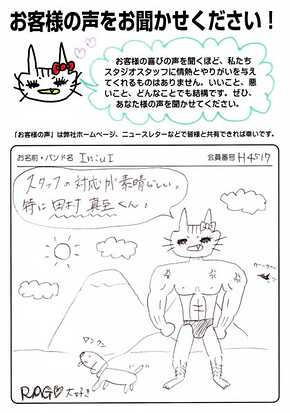 お客様の声をお聞かせください！
お客様の喜びの声を聞くほど、私たち
スタジオスタッフに情熱とやりがいを与え
てくれるものはありません。いいこと、悪
いこと、どんなことでも結構です。ぜひ、
あなた様の声を聞かせてください。
「お客様の声」は弊社ホームページ、ニュースレターなどで皆様と共有できれば幸いです。
お名前・バンド名 IniuI
会員番号 H4517
スタッフの対応が素晴らしい。
特に田村 真臣くん！
ワンワン
RAG♡大好き